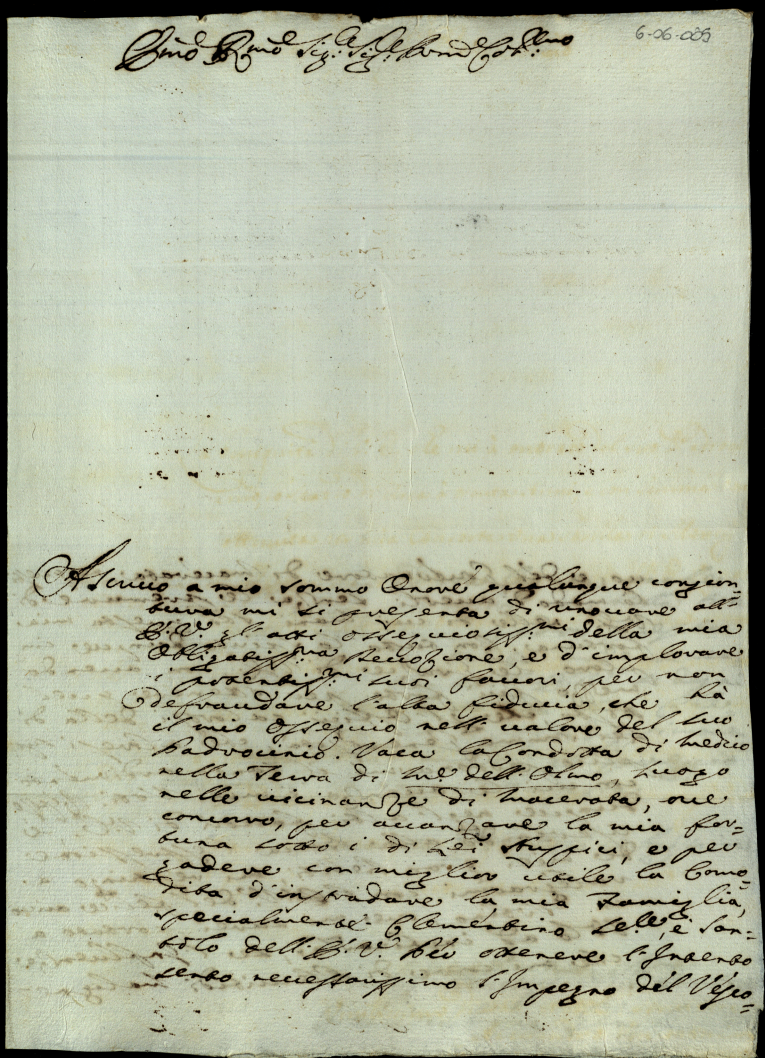 6-06-009
Em̃o R.mo Sig.re Sig.re Pron̄e Col.mo
Ascrivo a mio sommo Onore qualunque congion-
tura mi si presenta di rinovare all'
E. V. gl'atti ossequiosiss:mi della mia
Obligatiss:ma devozione, e d'implorare
i potentiss:mi suoi favori, per non
defraudare l'alta fiducia, che hà
il mio Ossequio nell'valore del suo
Padrocinio. Vaca la Condotta di Medico
nella Terra di M.e dell'Olmo, luogo
nelle vicinanze di Macerata, ove
concorro, per avanzare la mia for-
tuna sotto i di Lei Auspici, e per
gadere con miglior utile la Como-
dità d'instradare la mia Famiglia,
specialmente Clementino se:le, e San-
tolo dell'E. V. Per ottenere l'Intento
sento necessarissimo l'Impegno del Vesco-